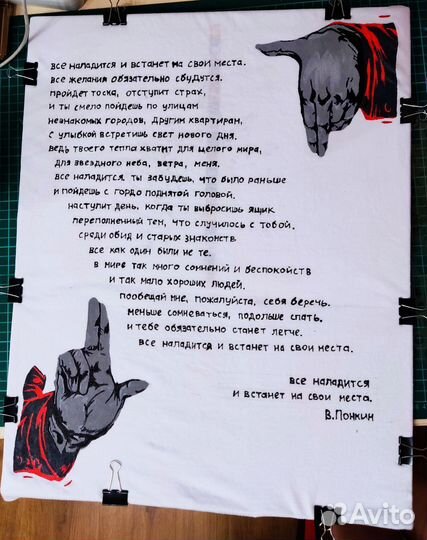 все наладится и встанет на свои места.
все желания обязательно сбудутся.
пройдет тоска, отступит страх,
и ты смело пойдешь по улицам
незнакомых городов, других квартирам,
с улыбкой встретишь свет нового дня.
ведь твоего тепла хватит для целого мира,
для звездного неба, ветра, меня.
все наладится. ты забудешь, что было раньше
и пойдешь с гордо поднятой головой.
наступит день, когда ты выбросишь ящик
переполненный тем, что случилось с тобой.
среди обид и старых знакомств
все как один были не те.
в мире так много сомнений и беспокойств
и так мало хороших людей.
пообещай мне, пожалуйста, себя беречь.
меньше сомневаться, подольше спать.
и тебе обязательно станет легче.
все наладится и встанет на свои места.
все наладится
и встанет на свои места.
В.Понкин
Avito